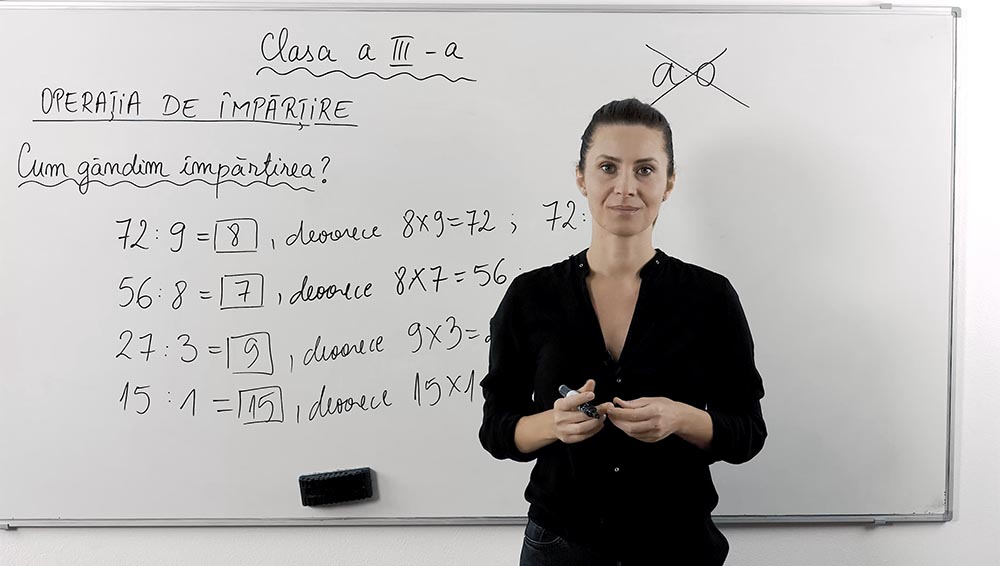 Clasa a III-a
a o
OPERAȚIA DE ÎMPĂRȚIRE
Cum gândim împărțirea?
72 : 9 = 8 , deoarece 8×9=72 ; 72:
56 : 8 = 7 , deoarece 8×7=56
27 : 3 = 9 , deoarece 9×3=
15 : 1 = 15 , deoarece 15×1